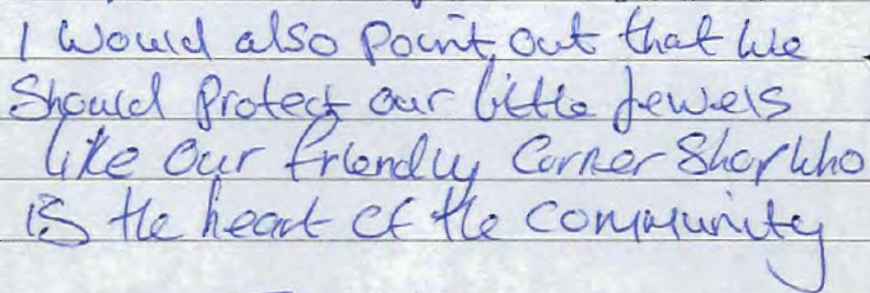 I would also point out that we
Should protect our little jewels
like our friendly Corner Shop who
is the heart of the community